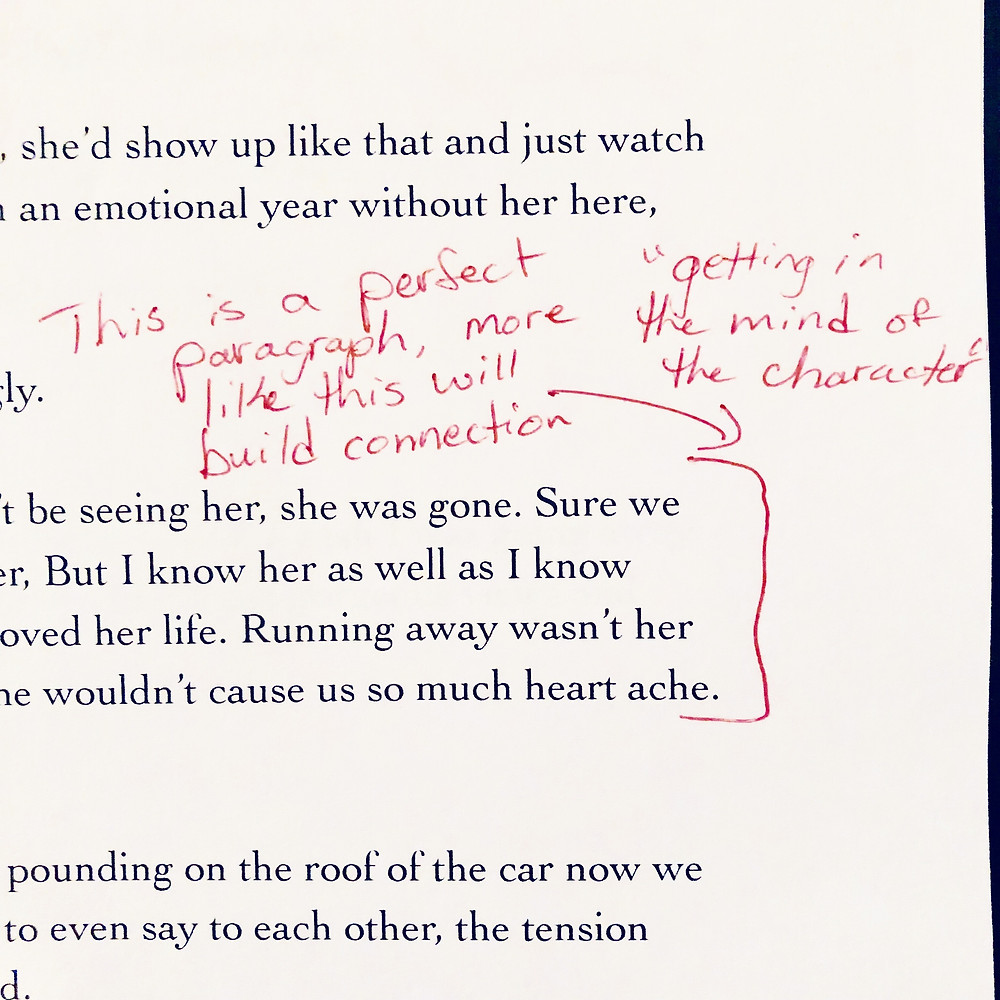 , she'd show up like that and just watch
an emotional year without her here,
This is a perfect
paragraph, more
like this will
build connection
"getting in
the mind of
the character"
gly.
't be seeing her, she was gone. Sure we
er, But I know her as well as I know
oved her life. Running away wasn't her
he wouldn't cause us so much heart ache.
pounding on the roof of the car now we
to even say to each other, the tension
d.